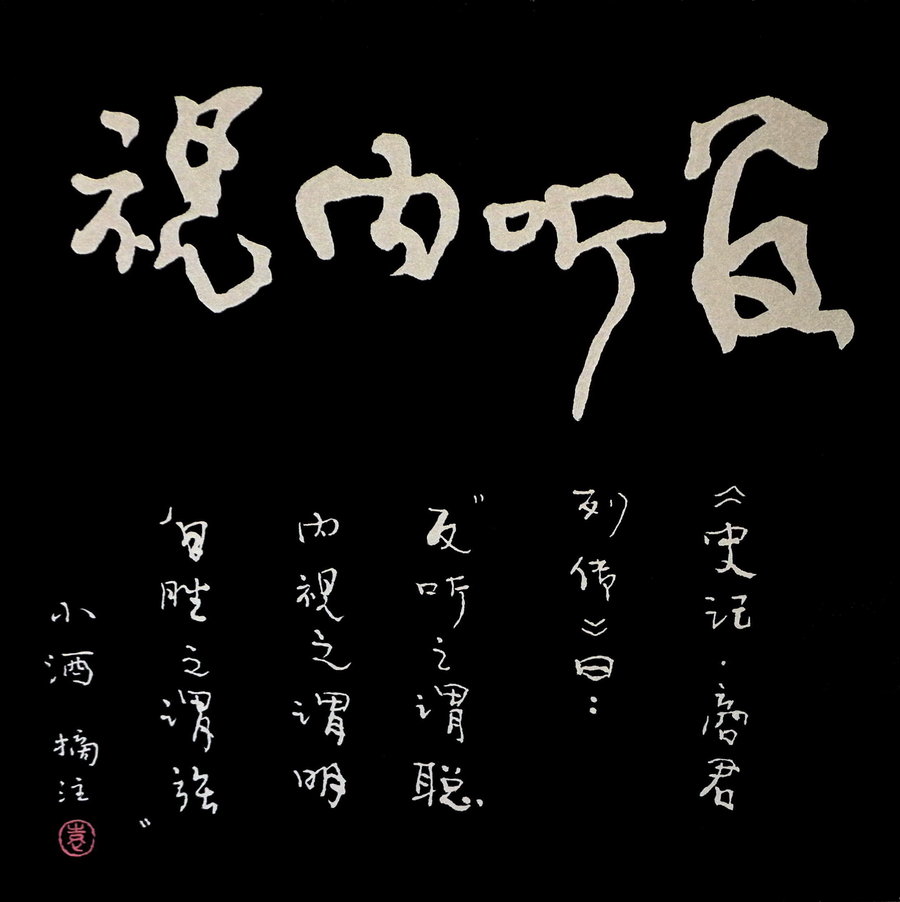 反听内视
《史记·商君
列传》曰：
“反听之谓聪
内视之谓明
自胜之谓强”
小酒 摘注
袁